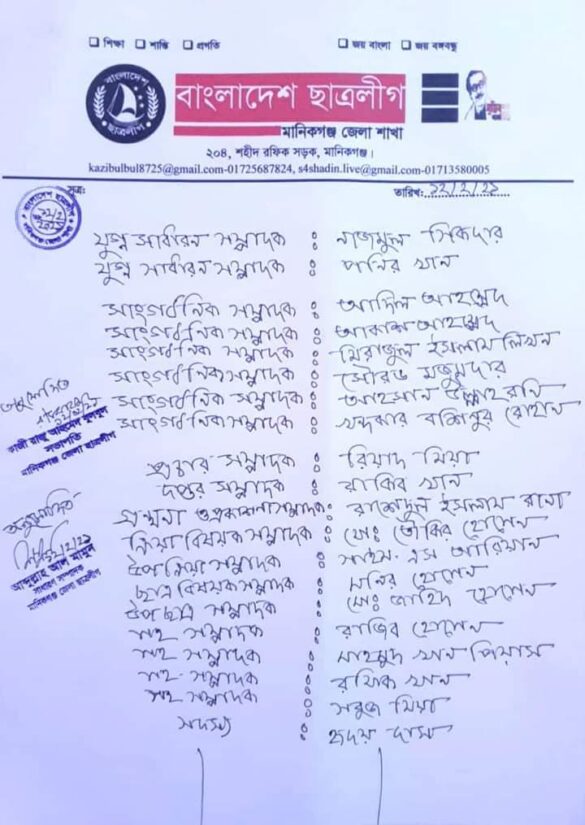 ☐ শিক্ষা ☐ শান্তি ☐ প্রগতি ☐ জয় বাংলা ☐ জয় বঙ্গবন্ধু
বাংলাদেশ ছাত্রলীগ
মানিকগঞ্জ জেলা শাখা
২০৪, শহীদ রফিক সড়ক, মানিকগঞ্জ।
kazibulbul8725@gmail.com-01725687824, s4shadin.live@gmail.com-01713580005
সূত্র: তারিখ: ১২/২/২১
যুগ্ম সাধারন সম্পাদক : নাজমুল সিকদার
যুগ্ম সাধারন সম্পাদক : পানির খান
সাংগঠনিক সম্পাদক : আদিল আহম্মেদ
সাংগঠনিক সম্পাদক : আকাশ আহম্মেদ
সাংগঠনিক সম্পাদক : মিরাজুল ইসলাম লিখন
সাংগঠনিক সম্পাদক : সৌরভ মজুমদার
সাংগঠনিক সম্পাদক : আহসান উল্লাহ রনি
সাংগঠনিক সম্পাদক : খন্দকার
প্রচার সম্পাদক : রিয়াদ মিয়া
দপ্তর সম্পাদক : রাকিব খান
গ্রন্থনা ও প্রকাশনা সম্পাদক : রাশেদুল ইসলাম
বিষয়ক সম্পাদক : মোঃ তৌকির হোসেন
উপ সম্পাদক : এস আরিয়ান
ছাত্র বিষয়ক সম্পাদক : মনির হোসেন
উপ ছাত্র সম্পাদক : মোঃ জাহিদ হোসেন
সহ সম্পাদক : রাজিব হোসেন
সহ সম্পাদক : মাহমুদ খান পিয়াস
সহ সম্পাদক : রফিক খান
সহ সম্পাদক : সবুজ মিয়া
সদস্য : হৃদয় দাস
অনুমোদিত
কাজী রাজু আহমেদ বুলবুল
সভাপতি
মানিকগঞ্জ জেলা ছাত্রলীগ
অনুমোদিত
১২/২/২১
আব্দুল্লাহ আল মামুন
সাধারণ সম্পাদক
মানিকগঞ্জ জেলা ছাত্রলীগ